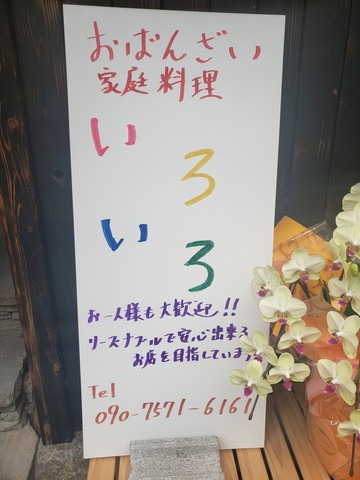 おばんざい
家庭料理
い
ろ
い
ろ
お一人様も大歓迎!!
リーズナブルで安心出来る
お店を目指しています
Tel
090-7571-6161